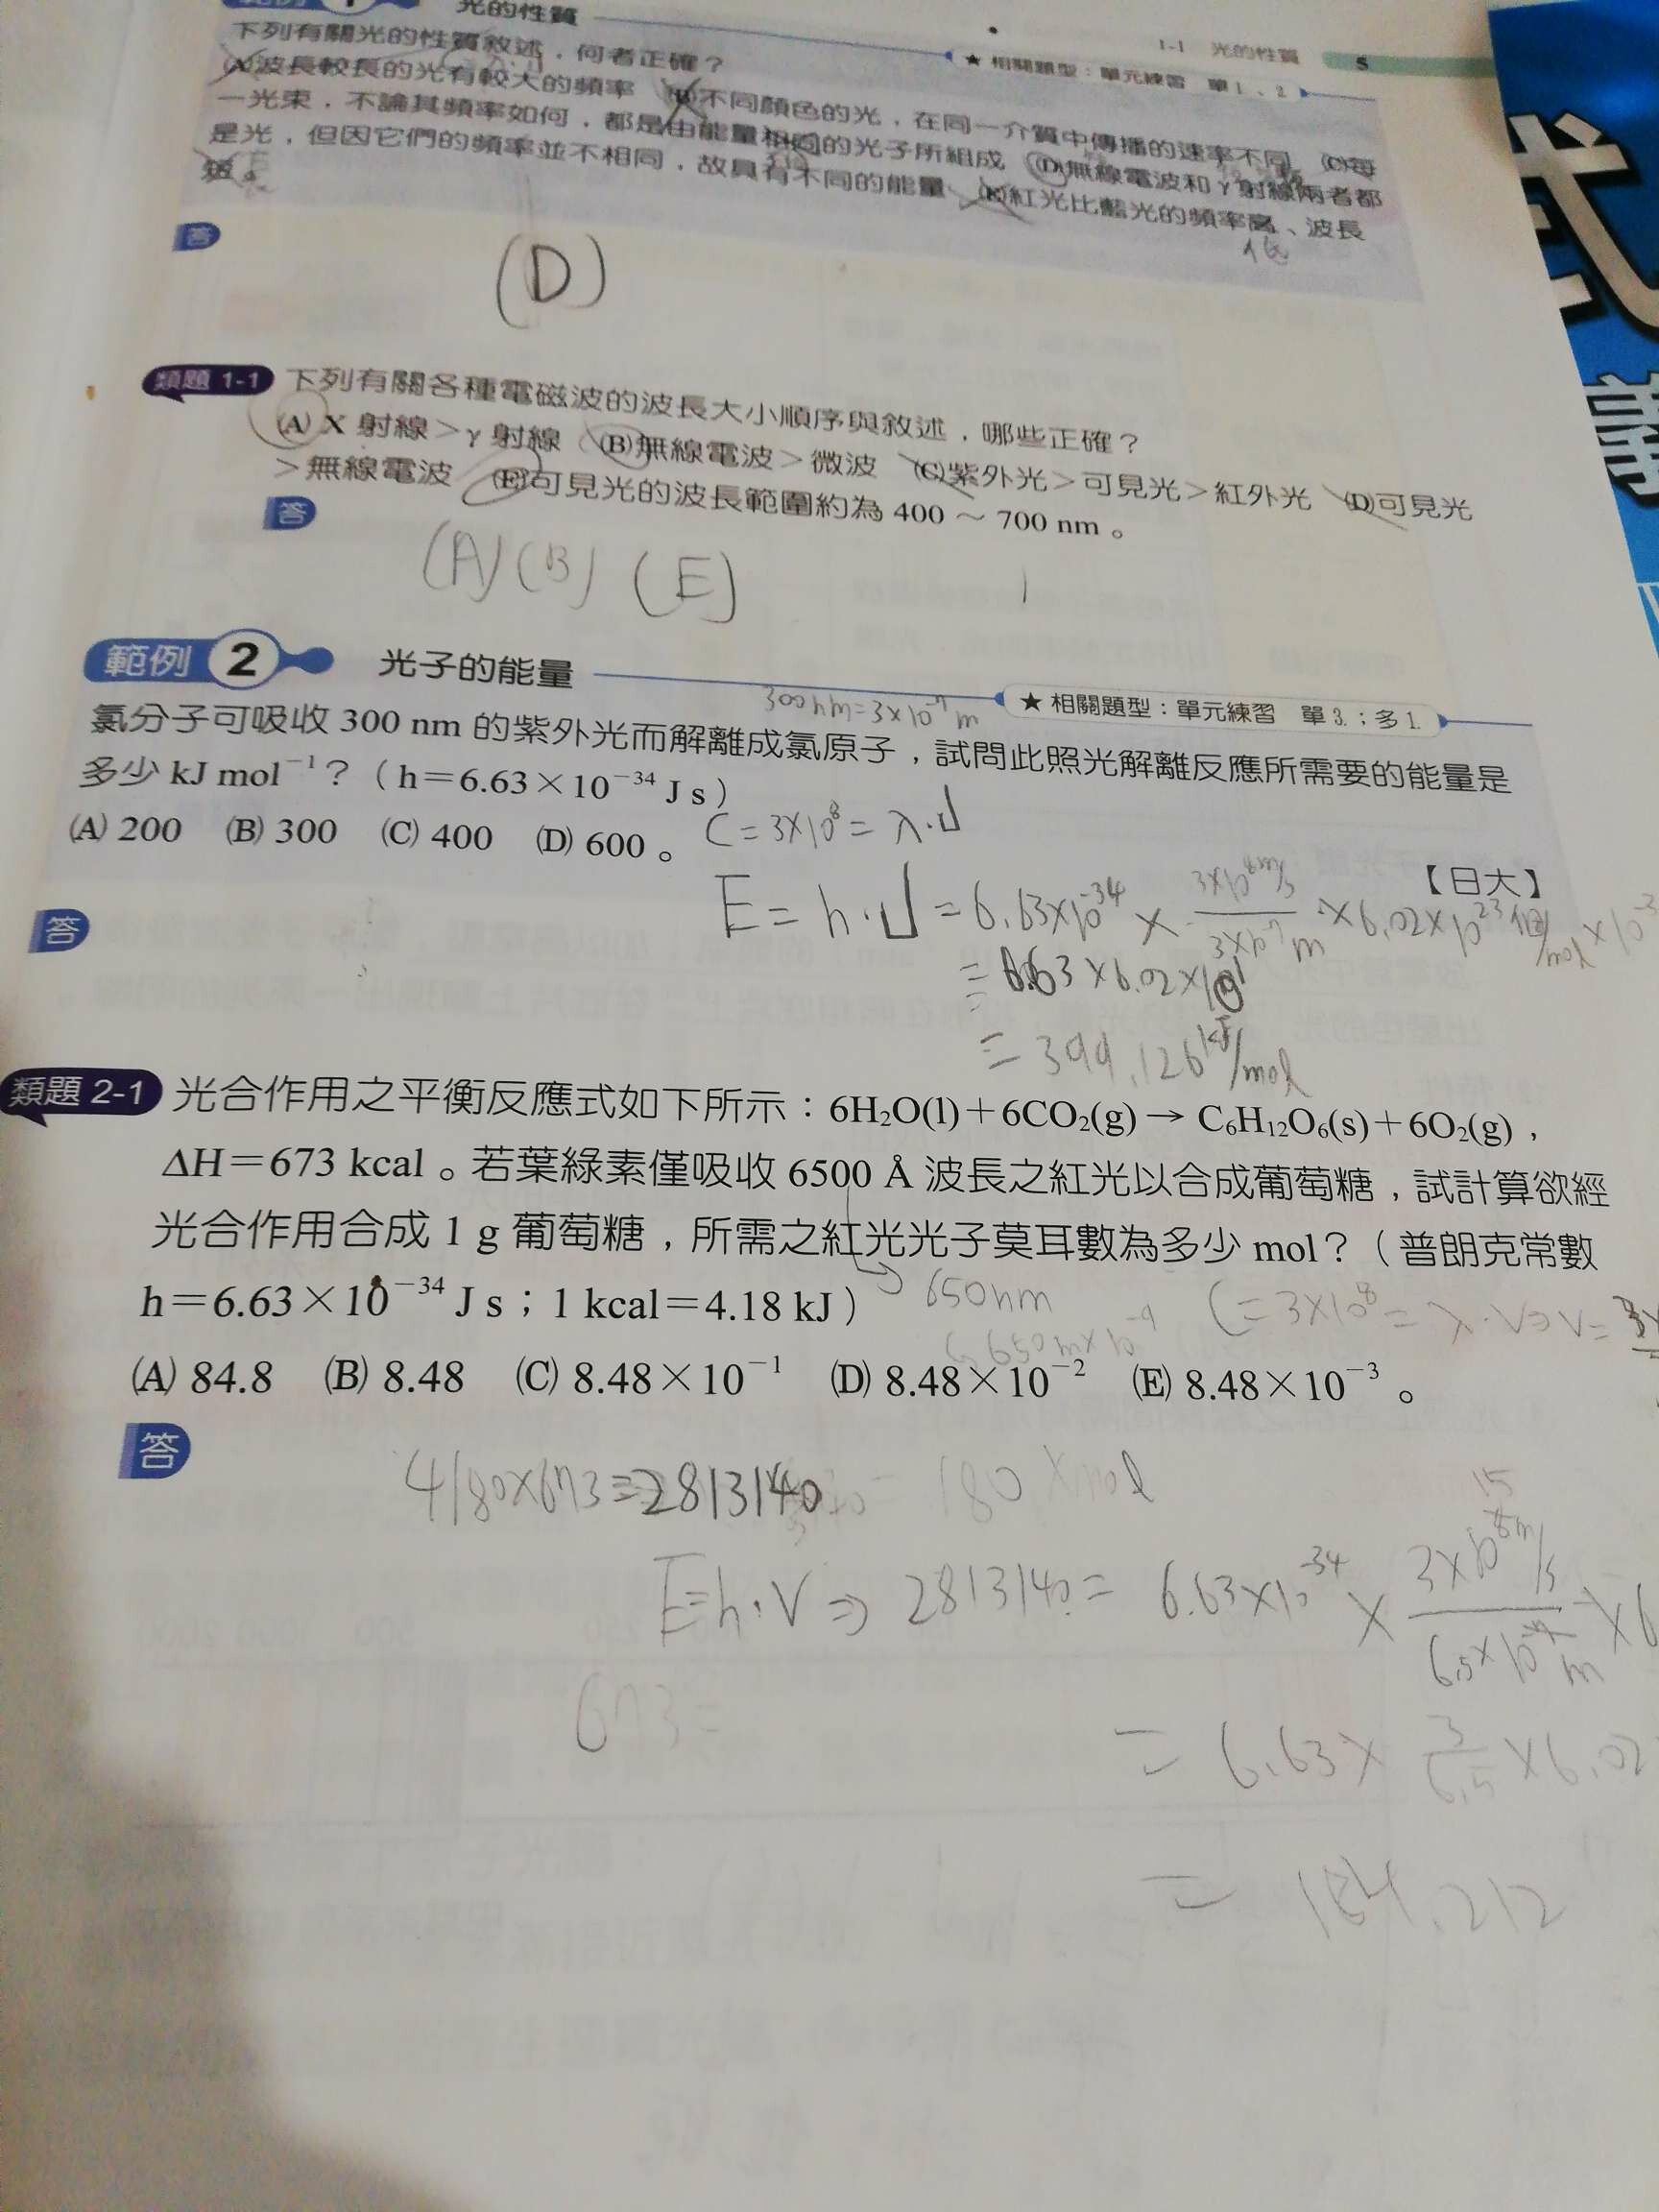 光的性質
1-1 光的性質 5
★相關題型：單元練習 單1、2
下列有關光的性質敘述，何者正確？
(A)波長較長的光有較大的頻率 (B)不同顏色的光，在同一介質中傳播的速率不同 (C)每
一光束，不論其頻率如何，都是由能量相同的光子所組成 (D)無線電波和γ射線兩者都
是光，但因它們的頻率並不相同，故具有不同的能量 (E)紅光比藍光的頻率高、波長
短。
低
答
(D)
類題 1-1 下列有關各種電磁波的波長大小順序與敘述，哪些正確？
(A) X 射線＞γ 射線 (B)無線電波＞微波 (C)紫外光＞可見光＞紅外光 (D)可見光
＞無線電波 (E)可見光的波長範圍約為 400 ～ 700 nm。
答
(A)(B)(E)
範例 2 光子的能量
★相關題型：單元練習 單3.；多1.
300nm=3×10⁻⁷m
氯分子可吸收 300 nm 的紫外光而解離成氯原子，試問此照光解離反應所需要的能量是
多少 kJ mol⁻¹？（h＝6.63×10⁻³⁴ J s）
(A) 200 (B) 300 (C) 400 (D) 600。
C=3×10⁸=λ·ν
【日大】
答
E=h·ν=6.63×10⁻³⁴×3×10⁸m/s/3×10⁻⁷m×6.02×10²³個/mol×10⁻³
=6.63×6.02×10¹
=399.126kJ/mol
類題 2-1 光合作用之平衡反應式如下所示：6H₂O(l)＋6CO₂(g)→C₆H₁₂O₆(s)＋6O₂(g)，
ΔH＝673 kcal。若葉綠素僅吸收 6500 Å 波長之紅光以合成葡萄糖，試計算欲經
光合作用合成 1 g 葡萄糖，所需之紅光光子莫耳數為多少 mol？（普朗克常數
h＝6.63×10⁻³⁴ J s；1 kcal＝4.18 kJ）
650nm
650m×10⁻⁹
C=3×10⁸=λ·V⇒V=
(A) 84.8 (B) 8.48 (C) 8.48×10⁻¹ (D) 8.48×10⁻² (E) 8.48×10⁻³。
答
4180×673=2813140
180×mol
E=h·V⇒2813140=6.63×10⁻³⁴×3×10⁸m/s/6.5×10⁻⁷m×6
673=
=6.63×3/6.5×6.02
=184.212